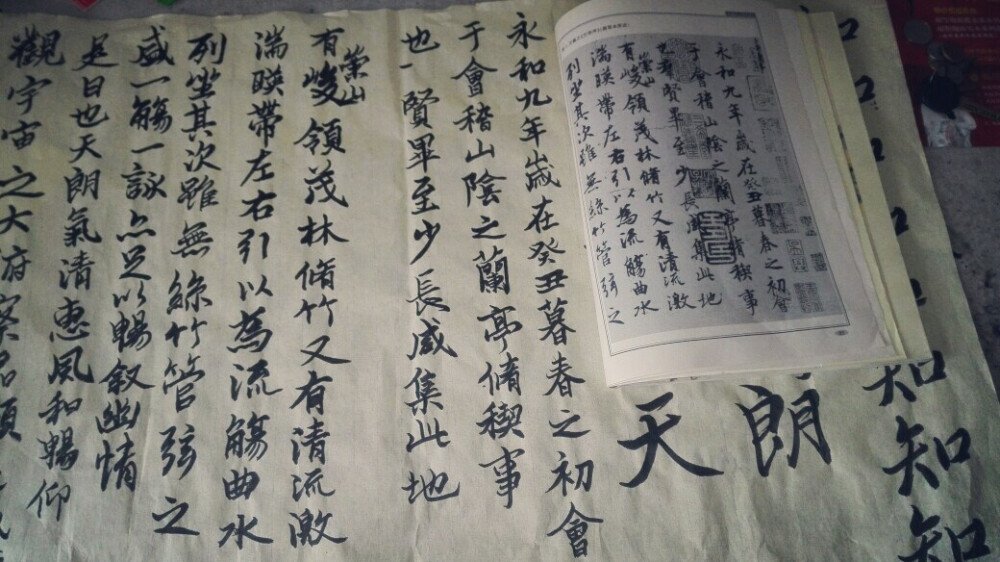 知
知
知
朗
天
永和九年歲在癸丑暮春之初會
于會稽山陰之蘭亭脩稧事
也一賢畢至少長咸集此地
有崇山峻領茂林脩竹又有清流激
湍暎帶左右引以為流觴曲水
列坐其次雖無絲竹管弦之
盛一觴一詠点足以暢敘幽情
是日也天朗氣清惠風和暢仰
觀宇宙之大府察品類
永和九年歲在癸丑暮春之初會
于會稽山陰之蘭亭脩稧事
也群賢畢至少長咸集此地
有崇山峻領茂林脩竹又有清流激
湍暎帶左右引以為流觴曲水
列坐其次雖無絲竹管弦之